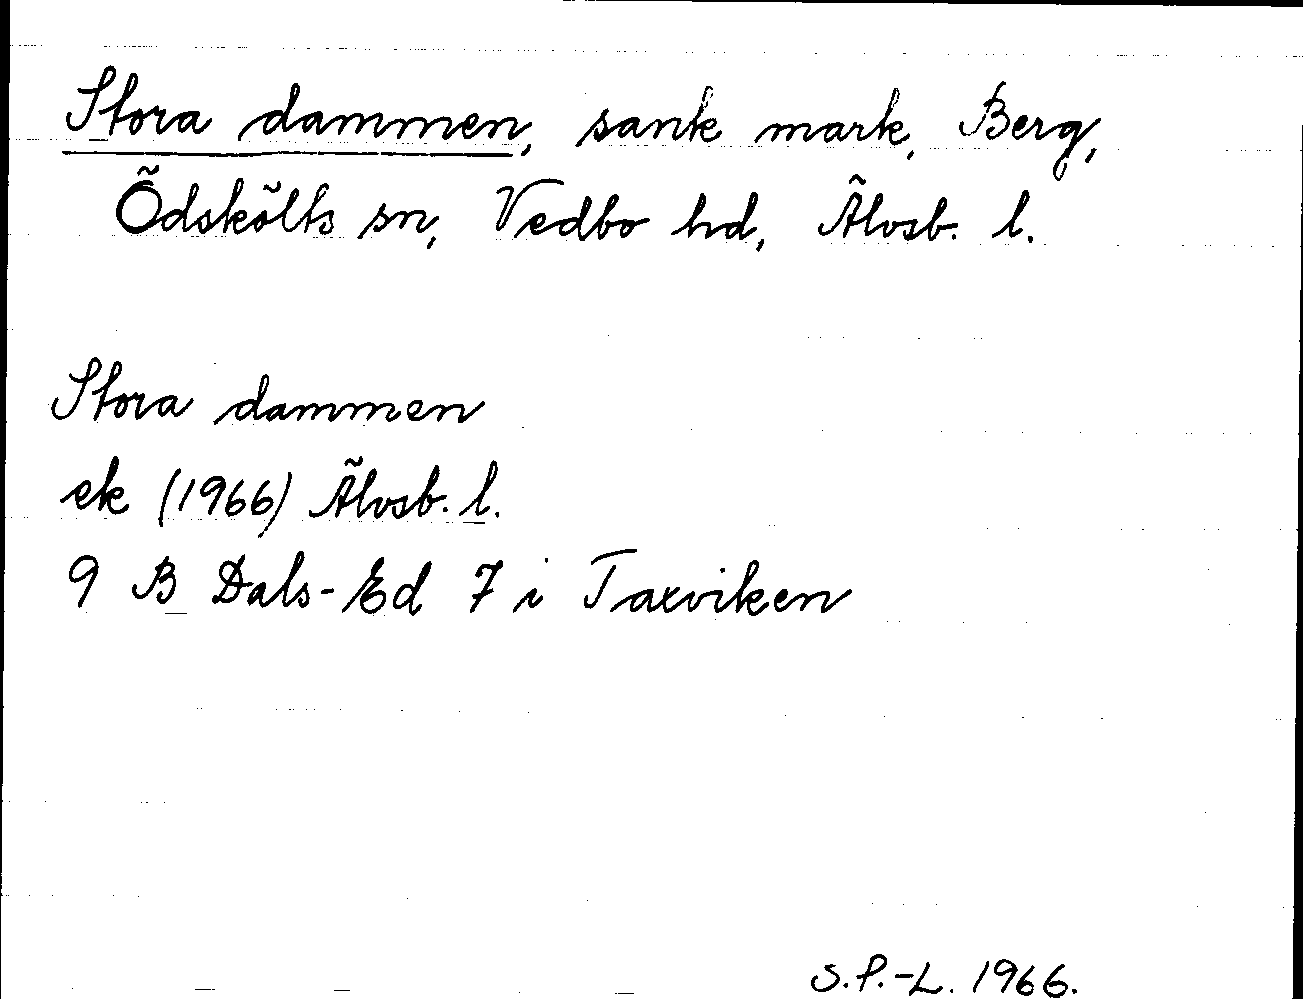 Stora dammen, sank mark, Berg,
Ödskölts sn, Vedbo hd, Älvsb. l.
Stora dammen
ek (1966) Älvsb. l.
9 B Dals-Ed 7 i Taxviken
S.P.-L. 1966.